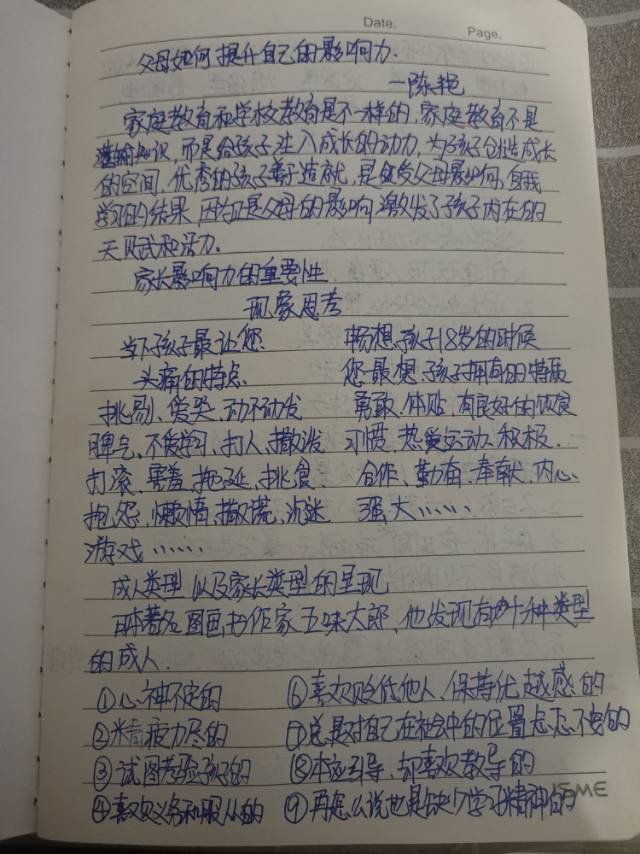 Date.
Page.
父母如何提升自己的影响力.
—陈艳
家庭教育和学校教育是不一样的,家庭教育不是
灌输知识,而是给孩子注入成长的动力,为孩子创造成长
的空间,优秀的孩子善于造就,是父母影响,自我
学习的结果,因为正是父母的影响,激发了孩子内在的
天赋和活力.
家长影响力的重要性
现象思考
当下孩子最让您
头痛的特点
挑剔、爱哭、动不动发
脾气、不爱学习、打人、撒泼
打滚、害羞、拖延、挑食、
抱怨、懒惰、撒谎、沉迷
游戏……
畅想孩子18岁的时候
您最想孩子拥有的特质
勇敢、体贴、有良好的饮食
习惯、热爱运动、积极、
合作、勤奋、奉献、内心
强大……
成人类型以及家长类型的呈现
日本著名图画书作家五味太郎,他发现有十种类型
的成人.
①心神不定的
②精疲力尽的
③试图考验孩子的
④喜欢义务和服从的
⑥喜欢贬低他人,保持优越感的
⑦总是对自己在社会中的位置忐忑不安的
⑧本应引导,却喜欢教导的
⑨再怎么说也是缺少学习精神的